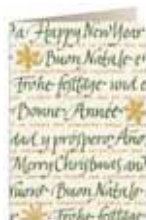 Happy New Year
Buon Natale e
Frohe festtage und e
Bonne Année
dad y prospero Año
Merry Christmas and
Buon Natale
Frohe festtage